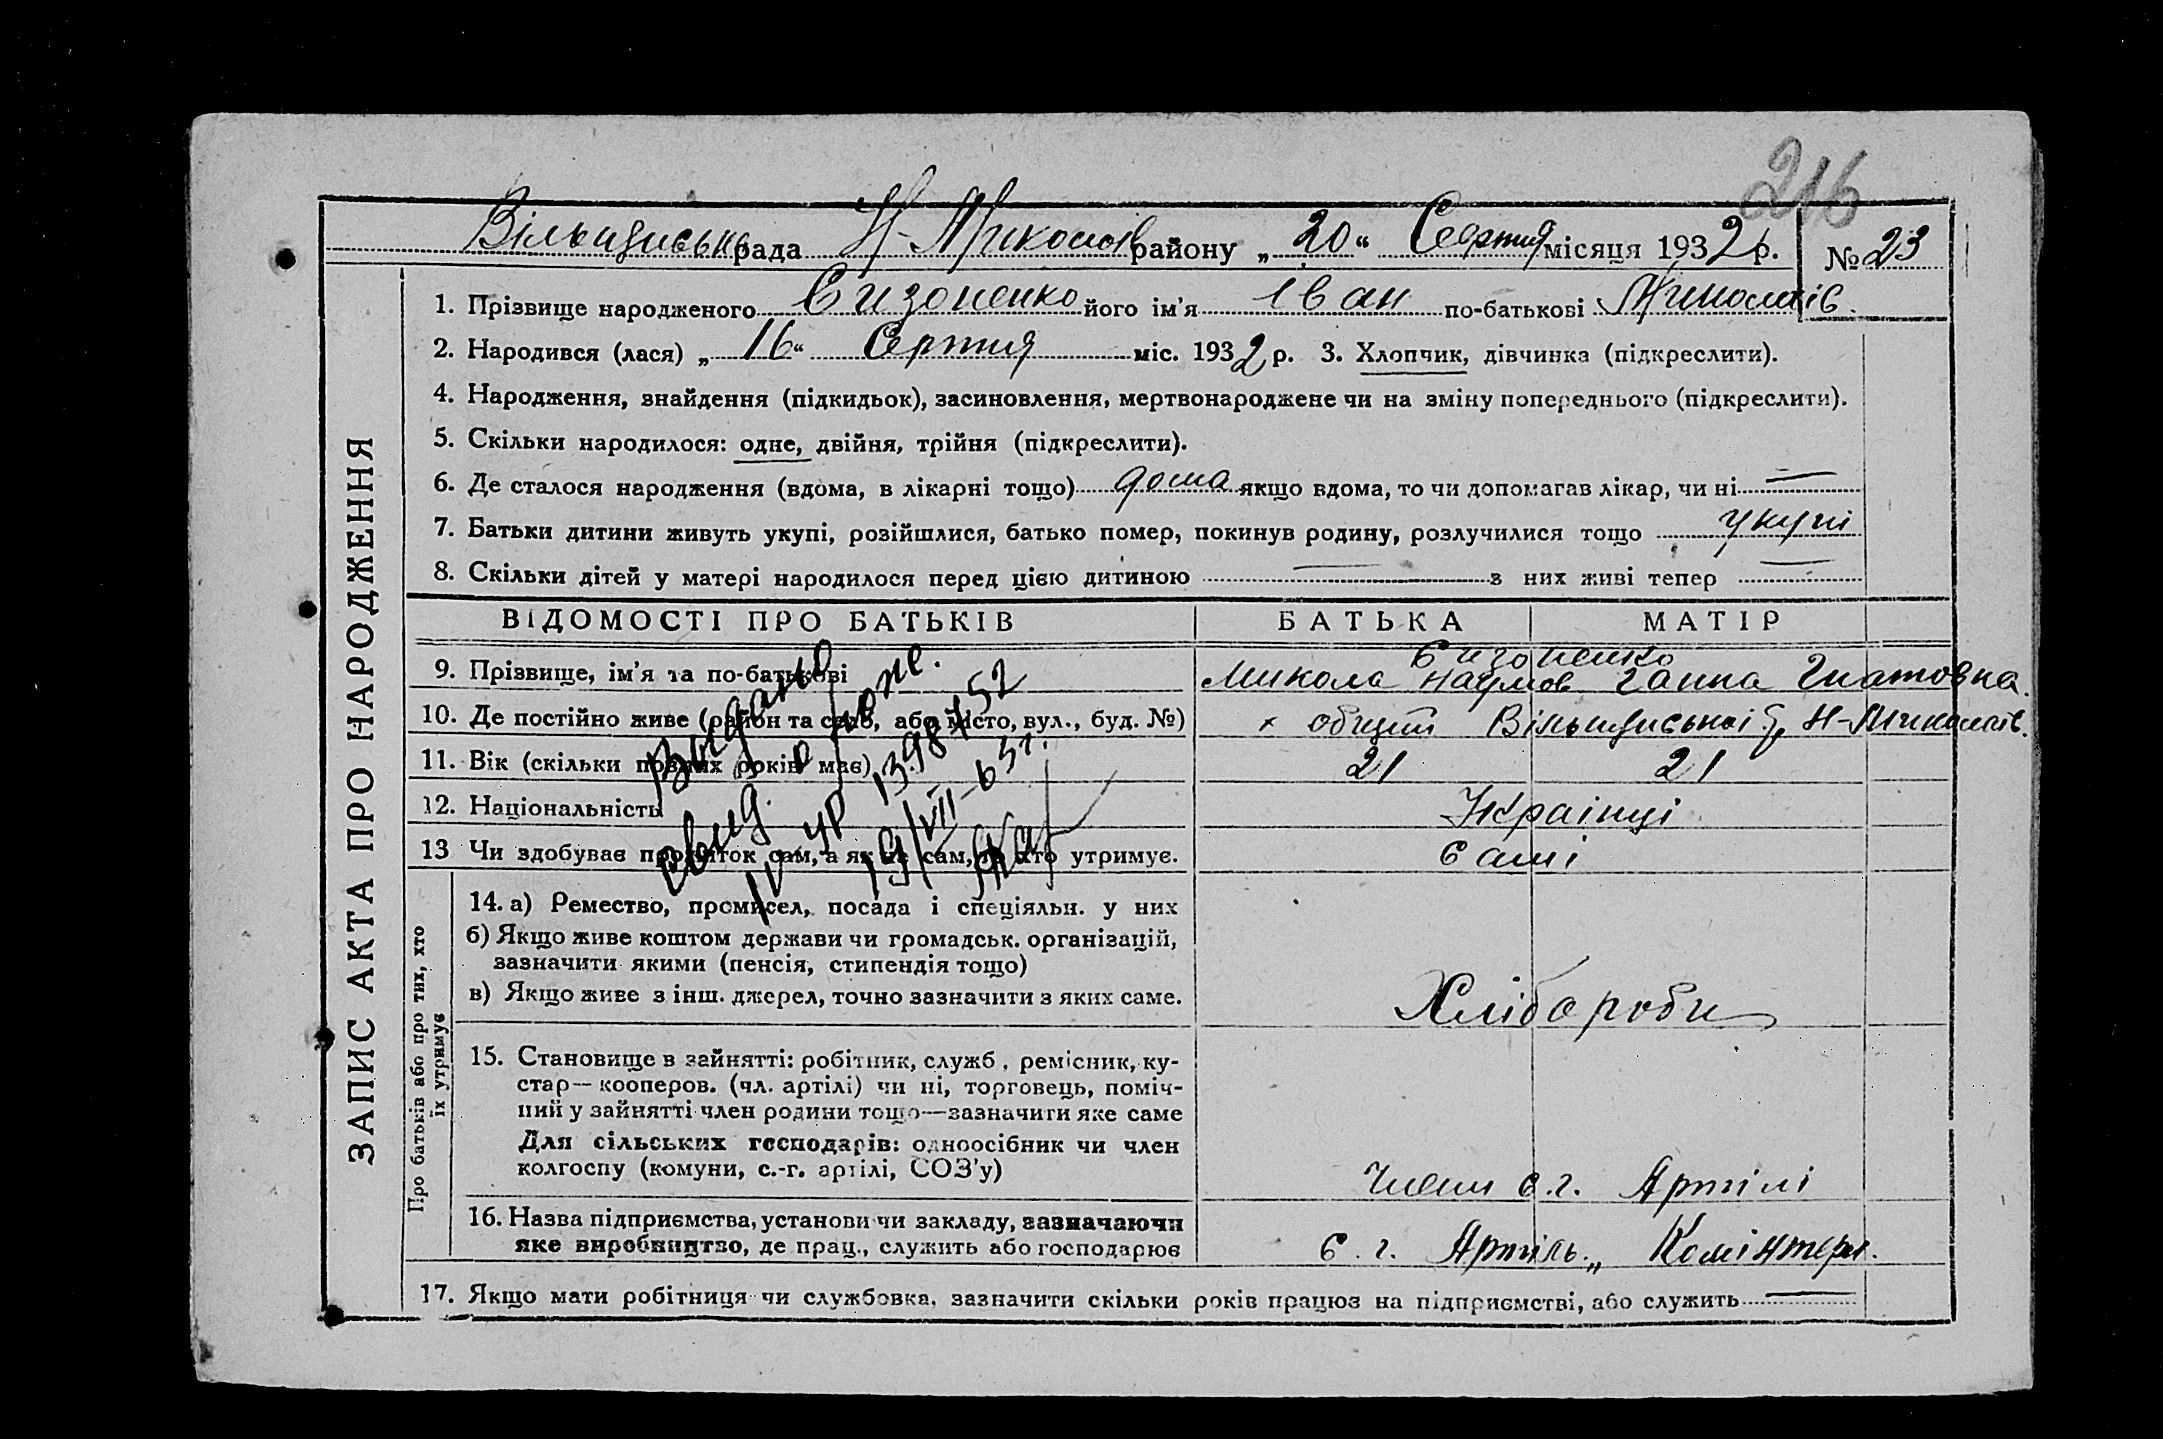 216
Вільшанська рада Н-Миколаїв району „20“ Серпня місяця 1932 р. № 23
ЗАПИС АКТА ПРО НАРОДЖЕННЯ
1. Прізвище народженого Сизоненко його ім'я Іван по-батькові Миколаїв.
2. Народився (лася) „16“ Серпня міс. 1932 р. 3. Хлопчик, дівчинка (підкреслити).
4. Народження, знайдення (підкидьок), засиновлення, мертвонароджене чи на зміну попереднього (підкреслити).
5. Скільки народилося: одне, двійня, трійня (підкреслити).
6. Де сталося народження (вдома, в лікарні тощо) дома якщо вдома, то чи допомагав лікар, чи ні —
7. Батьки дитини живуть укупі, розійшлися, батько помер, покинув родину, розлучилися тощо укупі
8. Скільки дітей у матері народилося перед цією дитиною — з них живі тепер —
ВІДОМОСТІ ПРО БАТЬКІВ БАТЬКА МАТІР
Сизоненко
9. Прізвище, ім'я та по-батькові Микола Наумов Ганна Гнатовна.
10. Де постійно живе (район та село, або місто, вул., буд. №) Н-Миколаїв.
11. Вік (скільки повних років має) 21 21
12. Національність Українці
13 Чи здобуває прожиток сам, а як не сам, то хто утримує. самі
Видано
свид. о рожд.
IV УР 1398752
19/VII-65г.
Про батьків або про тих, хто їх утримує
14. а) Ремество, промисел, посада і спеціяльн. у них
б) Якщо живе коштом держави чи громадськ. організацій,
зазначити якими (пенсія, стипендія тощо)
в) Якщо живе з інш. джерел, точно зазначити з яких саме. Хлібороби
15. Становище в зайнятті: робітник, служб, ремісник, ку-
стар—кооперов. (чл. артілі) чи ні, торговець, поміч-
ний у зайнятті член родини тощо—зазначити яке саме
Для сільських господарів: одноосібник чи член
колгоспу (комуни, с.-г. артілі, СОЗ'у) Члени с.г. Артілі
16. Назва підприємства, установи чи закладу, зазначаючи
яке виробництво, де прац., служить або господарює с. г. Артіль „Комінтерн.
17. Якщо мати робітниця чи службовка, зазначити скільки років працює на підприємстві, або служить —